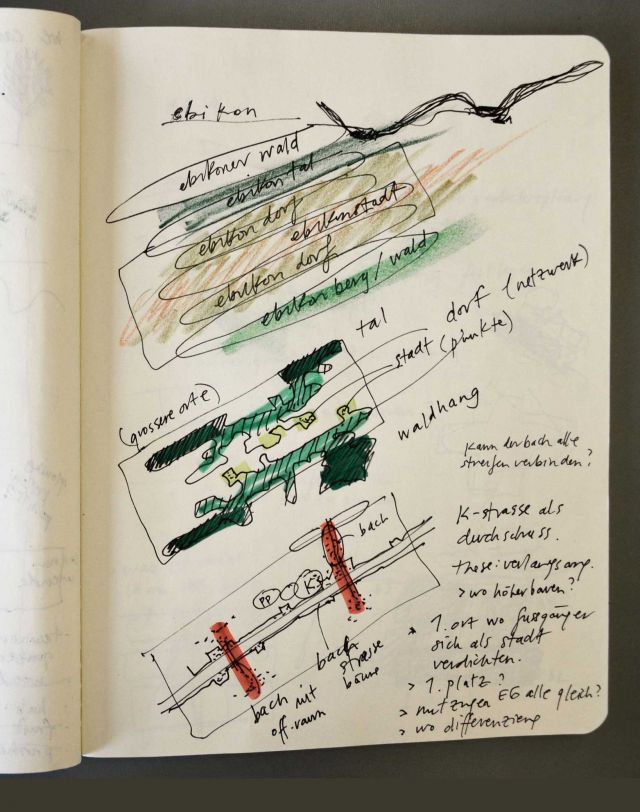 ebikon
ebikoner wald
ebikon tal
ebikon dorf
ebikonstadt
ebikon dorf
ebikon berg / wald
tal
dorf (netzwerk)
stadt (punkte)
(grossere orte)
waldhang
Kann der bach alle
streifen verbinden?
bach
K-strasse als
durchschuss.
these: verlangsamg.
> wo höher bauen?
PP
K
> 1. ort wo fussgänger
sich als stadt
verdichten.
bach
strasse
bäume
bach mit
off. raum
> 1. platz?
> nutzungen EG alle gleich?
> wo differenzierg